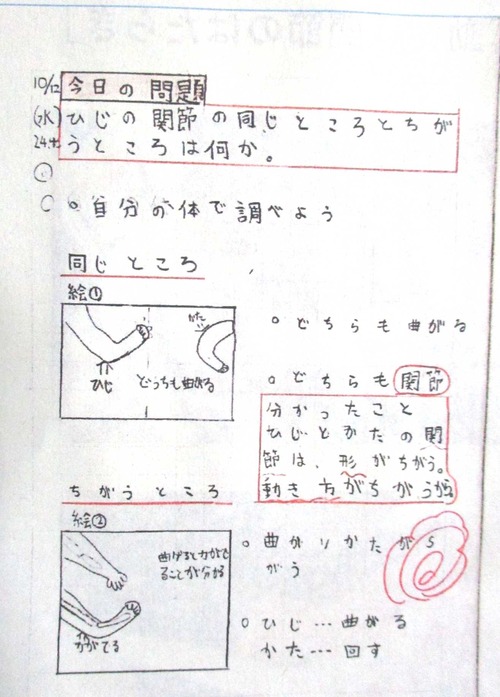 10/12
(水)
今日の問題
ひじの関節の同じところとちが
うところは何か。
○自分の体で調べよう
同じところ
絵①
かた
ひじ
どっちも曲がる
○どちらも曲がる
○どちらも関節
分かったこと
ひじとかたの関
節は、形がちがう。
動き方がちがうから
ちがうところ
絵②
曲げると力がで
ることが分かる
力がでる
○曲がりかたがち
がう
○ひじ…曲がる
かた…回す